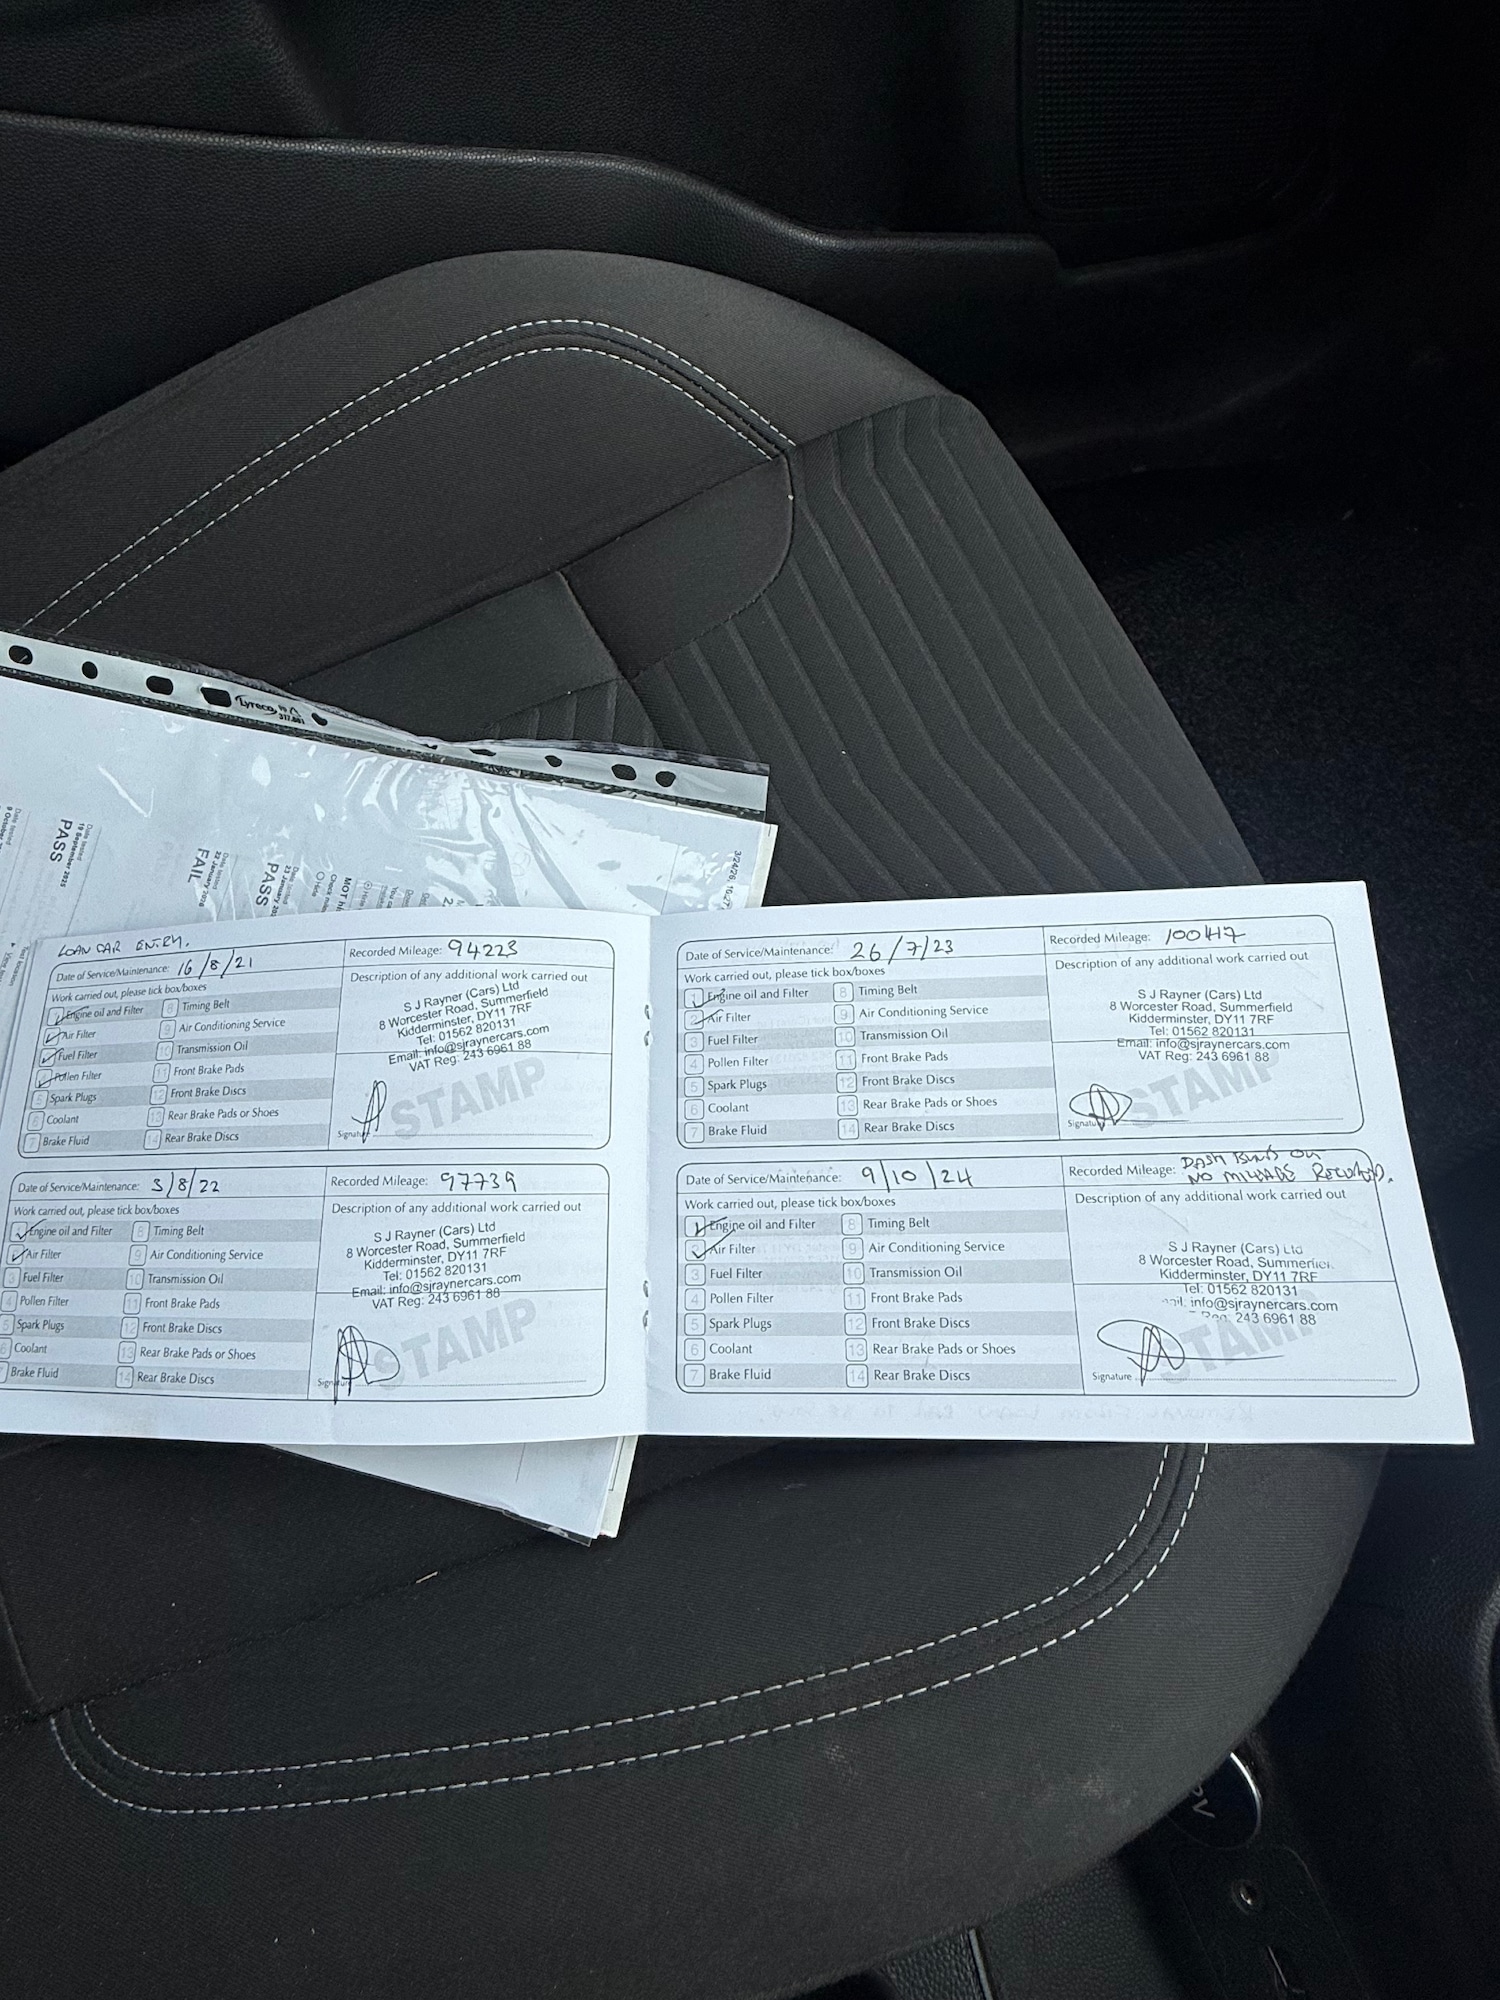 Lyreco
317.601
3/24/26, 10:27
Date tested
19 September 2025
PASS
Date tested
22 January 2026
FAIL
Date tested
23 January 202
PASS
MOT hi
Check mile
9 October
LOAN CAR ENTRY.
Date of Service/Maintenance: 16/8/21
Recorded Mileage: 94223
Work carried out, please tick box/boxes
Description of any additional work carried out
1 Engine oil and Filter
8 Timing Belt
Air Filter
9 Air Conditioning Service
Fuel Filter
10 Transmission Oil
Pollen Filter
11 Front Brake Pads
5 Spark Plugs
12 Front Brake Discs
6 Coolant
13 Rear Brake Pads or Shoes
7 Brake Fluid
14 Rear Brake Discs
S J Rayner (Cars) Ltd
8 Worcester Road, Summerfield
Kidderminster, DY11 7RF
Tel: 01562 820131
Email: info@sjraynercars.com
VAT Reg: 243 6961 88
STAMP
Signature
Date of Service/Maintenance: 3/8/22
Recorded Mileage: 97739
Work carried out, please tick box/boxes
Description of any additional work carried out
Engine oil and Filter
8 Timing Belt
Air Filter
9 Air Conditioning Service
3 Fuel Filter
10 Transmission Oil
4 Pollen Filter
11 Front Brake Pads
5 Spark Plugs
12 Front Brake Discs
6 Coolant
13 Rear Brake Pads or Shoes
7 Brake Fluid
14 Rear Brake Discs
S J Rayner (Cars) Ltd
8 Worcester Road, Summerfield
Kidderminster, DY11 7RF
Tel: 01562 820131
Email: info@sjraynercars.com
VAT Reg: 243 6961 88
STAMP
Signature
Date of Service/Maintenance: 26/7/23
Recorded Mileage: 100417
Work carried out, please tick box/boxes
Description of any additional work carried out
1 Engine oil and Filter
8 Timing Belt
2 Air Filter
9 Air Conditioning Service
3 Fuel Filter
10 Transmission Oil
4 Pollen Filter
11 Front Brake Pads
5 Spark Plugs
12 Front Brake Discs
6 Coolant
13 Rear Brake Pads or Shoes
7 Brake Fluid
14 Rear Brake Discs
S J Rayner (Cars) Ltd
8 Worcester Road, Summerfield
Kidderminster, DY11 7RF
Tel: 01562 820131
Email: info@sjraynercars.com
VAT Reg: 243 6961 88
STAMP
Signature
Date of Service/Maintenance: 9/10/24
Recorded Mileage: DASH
NO MILEAGE RECORDED.
Work carried out, please tick box/boxes
Description of any additional work carried out
1 Engine oil and Filter
8 Timing Belt
2 Air Filter
9 Air Conditioning Service
3 Fuel Filter
10 Transmission Oil
4 Pollen Filter
11 Front Brake Pads
5 Spark Plugs
12 Front Brake Discs
6 Coolant
13 Rear Brake Pads or Shoes
7 Brake Fluid
14 Rear Brake Discs
S J Rayner (Cars) Ltd
8 Worcester Road, Summerfiel
Kidderminster, DY11 7RF
Tel: 01562 820131
ail: info@sjraynercars.com
Reg: 243 6961 88
STAMP
Signature